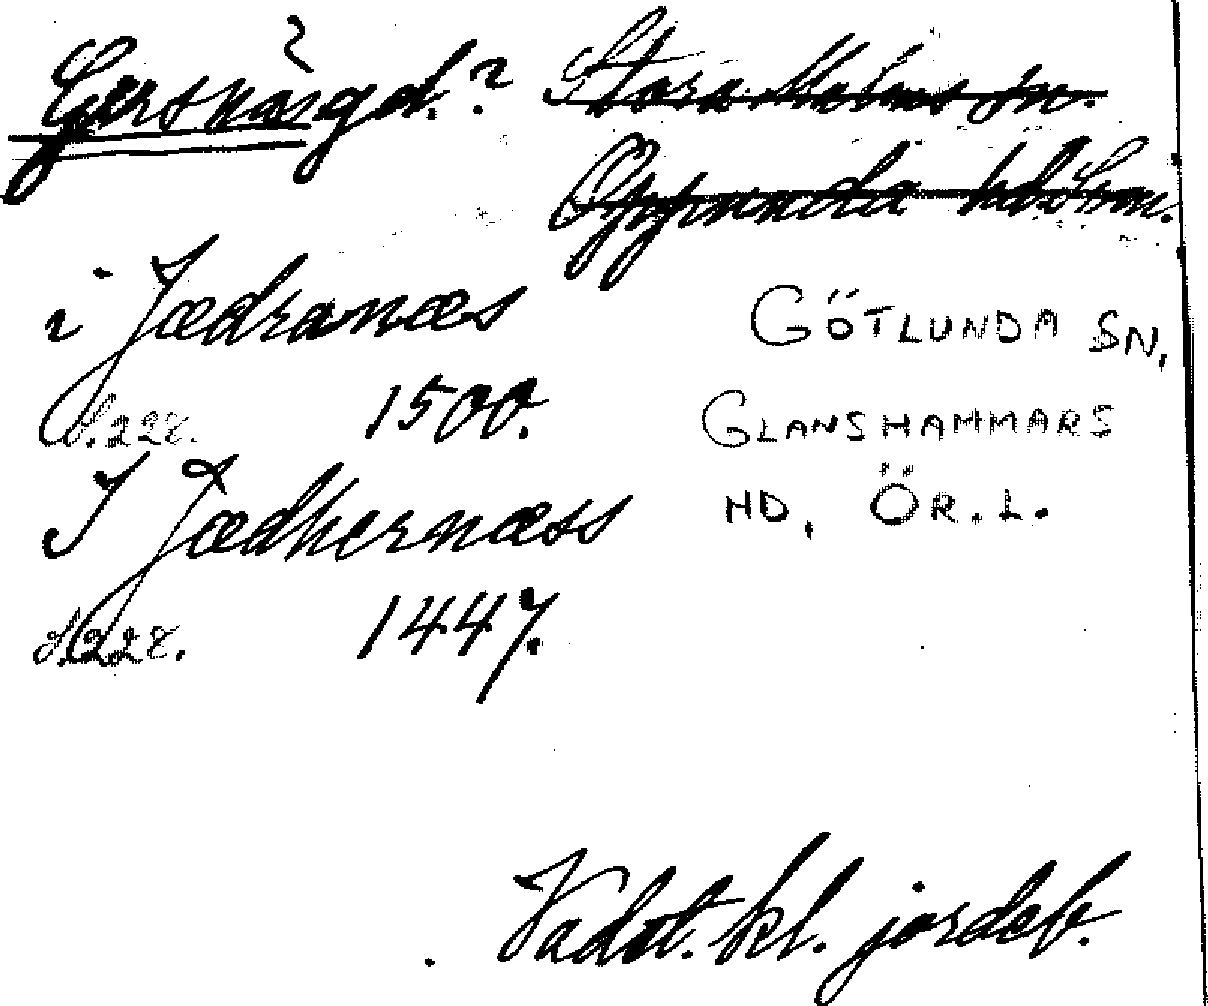 ?
Gersnäs gd.? Stora Malms sn.
Oppunda hd Srm.
i Jædranæs GÖTLUNDA SN,
S. 228. 1500. GLANSHAMMARS
I Jædhernæss HD, ÖR.L.
S. 228. 1447.
Vadst. kl. jordeb.